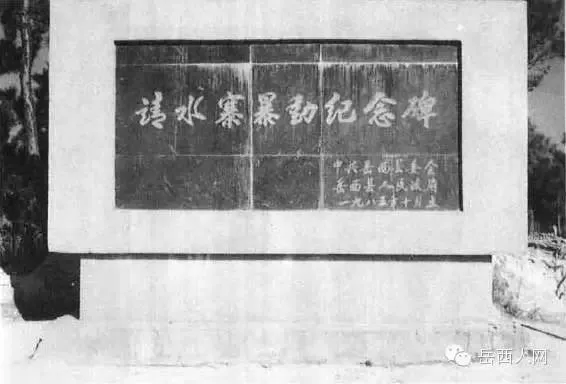 请水寨暴动纪念碑
中共岳西县委会
岳西县人民政府
一九八五年十月立
岳西人网